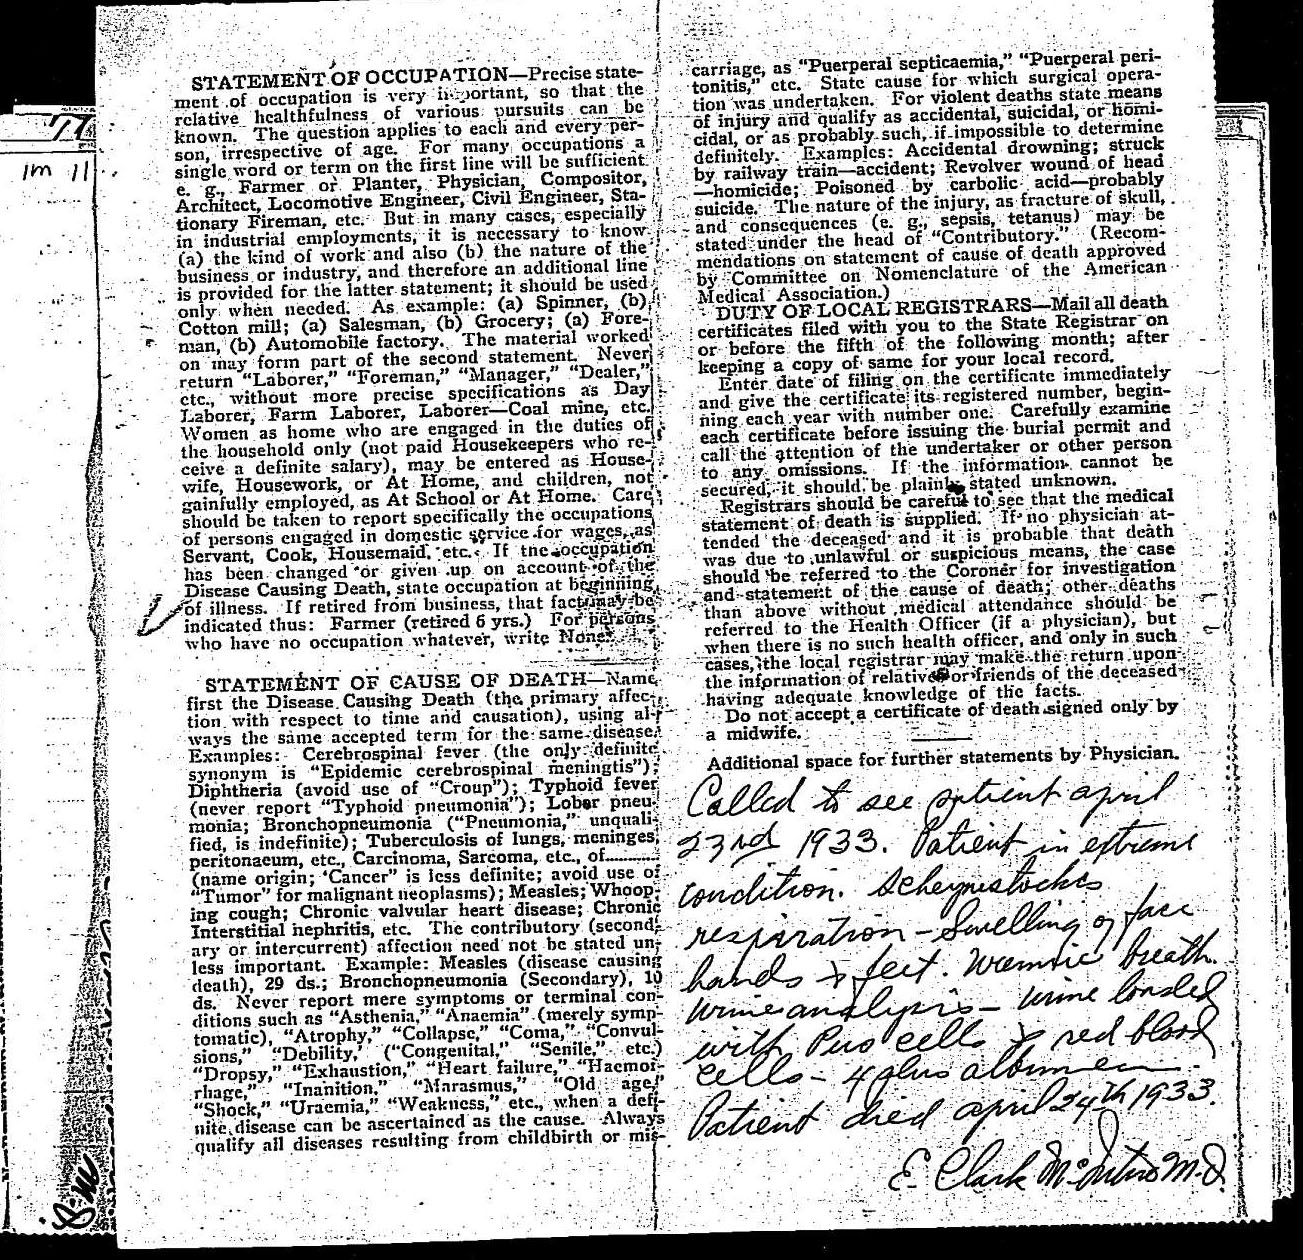 77
1m 11
STATEMENT OF OCCUPATION—Precise state-
ment of occupation is very important, so that the
relative healthfulness of various pursuits can be
known. The question applies to each and every per-
son, irrespective of age. For many occupations a
single word or term on the first line will be sufficient
e. g., Farmer or Planter, Physician, Compositor,
Architect, Locomotive Engineer, Civil Engineer, Sta-
tionary Fireman, etc. But in many cases, especially
in industrial employments, it is necessary to know
(a) the kind of work and also (b) the nature of the
business or industry, and therefore an additional line
is provided for the latter statement; it should be used
only when needed. As example: (a) Spinner, (b)
Cotton mill; (a) Salesman, (b) Grocery; (a) Fore-
man, (b) Automobile factory. The material worked
on may form part of the second statement. Never
return "Laborer," "Foreman," "Manager," "Dealer,"
etc., without more precise specifications as Day
Laborer, Farm Laborer, Laborer—Coal mine, etc.
Women as home who are engaged in the duties of
the household only (not paid Housekeepers who re-
ceive a definite salary), may be entered as House-
wife, Housework, or At Home, and children, not
gainfully employed, as At School or At Home. Care
should be taken to report specifically the occupations
of persons engaged in domestic service for wages, as
Servant, Cook, Housemaid, etc. If the occupation
has been changed or given up on account of the
Disease Causing Death, state occupation at beginning
of illness. If retired from business, that fact may be
indicated thus: Farmer (retired 6 yrs.) For persons
who have no occupation whatever, write None.
STATEMENT OF CAUSE OF DEATH—Name
first the Disease Causing Death (the primary affec-
tion with respect to time and causation), using al-
ways the same accepted term for the same disease.
Examples: Cerebrospinal fever (the only definite
synonym is "Epidemic cerebrospinal meningtis");
Diphtheria (avoid use of "Croup"); Typhoid fever
(never report "Typhoid pneumonia"); Lobar pneu-
monia; Bronchopneumonia ("Pneumonia," unquali-
fied, is indefinite); Tuberculosis of lungs, meninges,
peritonaeum, etc., Carcinoma, Sarcoma, etc., of............
(name origin; 'Cancer" is less definite; avoid use of
"Tumor" for malignant neoplasms); Measles; Whoop-
ing cough; Chronic valvular heart disease; Chronic
Interstitial nephritis, etc. The contributory (second-
ary or intercurrent) affection need not be stated un-
less important. Example: Measles (disease causing
death), 29 ds.; Bronchopneumonia (Secondary), 10
ds. Never report mere symptoms or terminal con-
ditions such as "Asthenia," "Anaemia" (merely symp-
tomatic), "Atrophy," "Collapse," "Coma," "Convul-
sions," "Debility," ("Congenital," "Senile," etc.)
"Dropsy," "Exhaustion," "Heart failure," "Haemor-
rhage," "Inanition," "Marasmus," "Old age,"
"Shock," "Uraemia," "Weakness," etc., when a defi-
nite disease can be ascertained as the cause. Always
qualify all diseases resulting from childbirth or mis-
carriage, as "Puerperal septicaemia," "Puerperal peri-
tonitis," etc. State cause for which surgical opera-
tion was undertaken. For violent deaths state means
of injury and qualify as accidental, suicidal, or homi-
cidal, or as probably such, if impossible to determine
definitely. Examples: Accidental drowning; struck
by railway train—accident; Revolver wound of head
—homicide; Poisoned by carbolic acid—probably
suicide. The nature of the injury, as fracture of skull,
and consequences (e. g., sepsis, tetanus) may be
stated under the head of "Contributory." (Recom-
mendations on statement of cause of death approved
by Committee on Nomenclature of the American
Medical Association.)
DUTY OF LOCAL REGISTRARS—Mail all death
certificates filed with you to the State Registrar on
or before the fifth of the following month; after
keeping a copy of same for your local record.
Enter date of filing on the certificate immediately
and give the certificate its registered number, begin-
ning each year with number one. Carefully examine
each certificate before issuing the burial permit and
call the attention of the undertaker or other person
to any omissions. If the information cannot be
secured, it should be plainly stated unknown.
Registrars should be careful to see that the medical
statement of death is supplied. If no physician at-
tended the deceased and it is probable that death
was due to unlawful or suspicious means, the case
should be referred to the Coroner for investigation
and statement of the cause of death; other deaths
than above without medical attendance should be
referred to the Health Officer (if a physician), but
when there is no such health officer, and only in such
cases, the local registrar may make the return upon
the information of relatives or friends of the deceased
having adequate knowledge of the facts.
Do not accept a certificate of death signed only by
a midwife.
Additional space for further statements by Physician.
Called to see patient april
23rd 1933. Patient in extreme
condition.
respiration - Swelling of face
hands & feet. Uremic breath.
Urineanalysis - urine loaded
with Pus cells & red blood
cells - 4 plus albumen.
Patient died april 24th 1933.
E. Clark McIntire M.D.